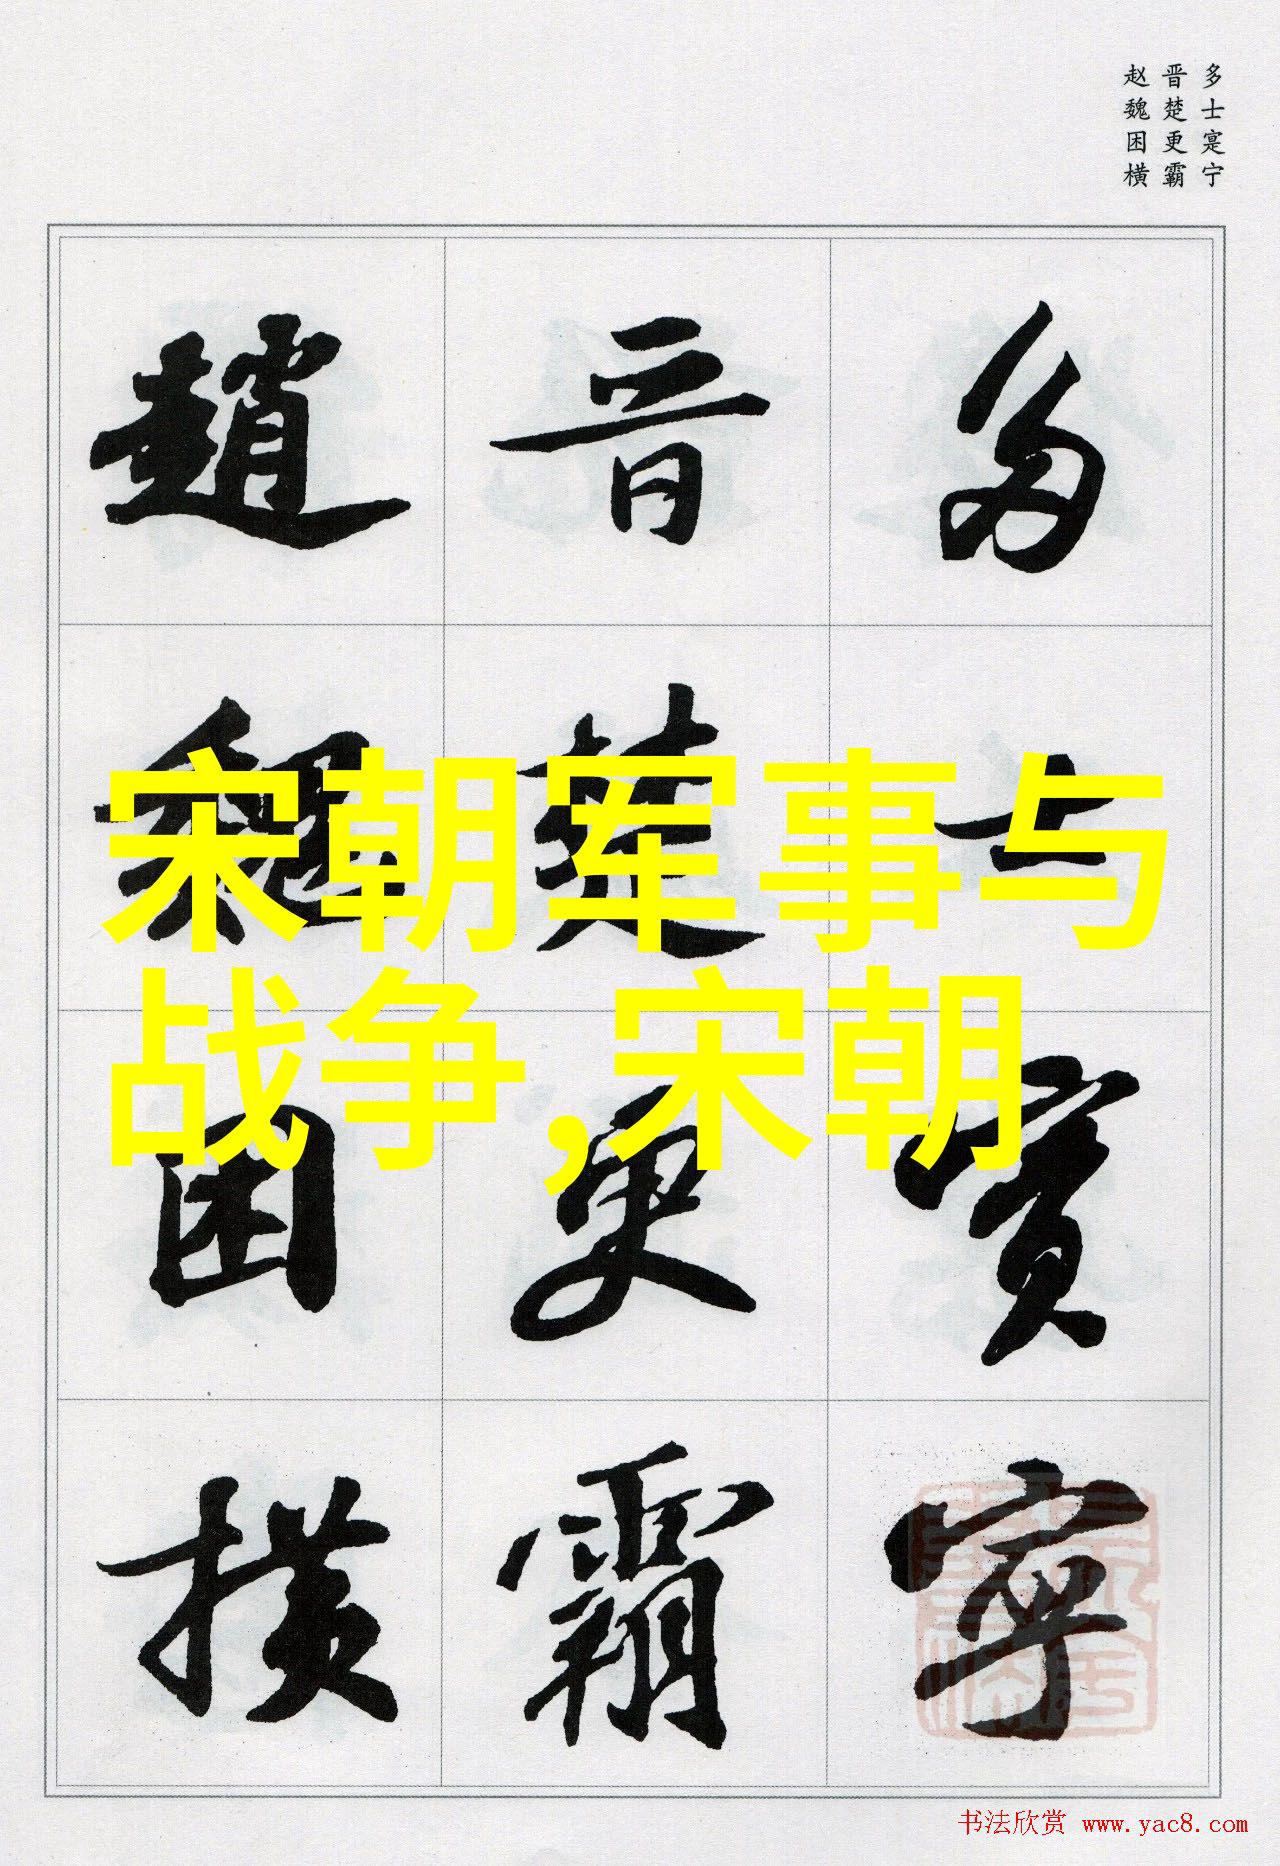 多士寔宁
晋楚更霸
赵魏困横
多士寔寧
晋楚更霸
趙魏困横
宋朝军事与
战争,宋朝
书法欣赏 www.yac8.com